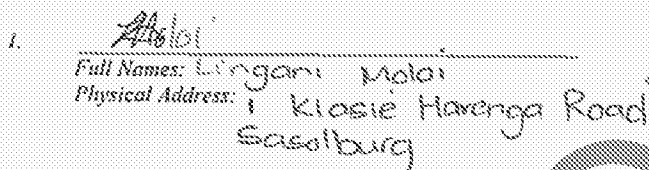 1.
Full Names: Lingani Moloi
Physical Address:
1 Klasie Havenga Road
Sasolburg